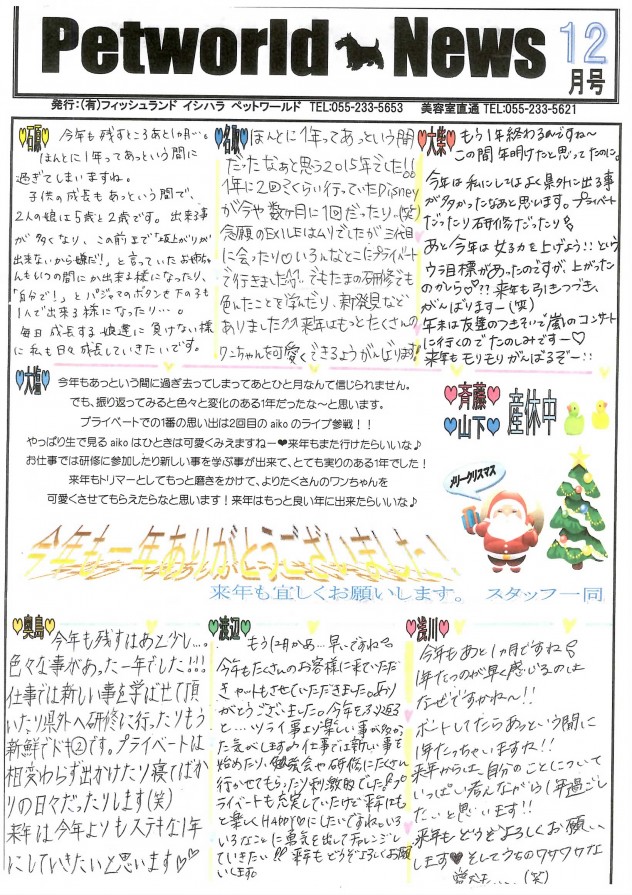 Petworld News
12
月号
発行：(有)フィッシュランド イシハラ ペットワールド TEL:055-233-5653 美容室直通 TEL:055-233-5621
石原
今年も残すところあと1か月…。
ほんとに1年ってあっという間に
過ぎてしまいますね。
子供の成長もあっという間で、
2人の娘は5歳と2歳です。出来る事
が多くなり、この前まで「坂上がりが
出来ないから嫌だ!」と言っていたお姉ちゃ
んもいつの間にか出来る様になったり、
「自分で!」とパジャマのボタンを下の子も
1人で出来る様になったり…。
毎日成長する娘達に負けない様
に私も日々成長していきたいです。
名取
ほんとに1年ってあっという間
だったなぁと思う2015年でした!!
1年に2回ぐらい行っていたDisney
が今や数ヶ月に1回だったり(笑)
念願のEXILEはムリでしたが三代目
に会ったり♡いろんなとこにプライベート
で行きました。でもたまの研修でも
色んなことを学んだり、新発見など
ありました↗↗来年はもっとたくさんの
ワンちゃんを可愛くできるようがんばります!
大柴
もう1年終わるのですね〜
この間年明けたと思ってたのに。
今年は私にしてはよく県外に出る事
が多かったなあと思います。プライベート
だったり研修だったり
あと今年は女子力を上げよう!!という
ウラ目標があったのですが、上がった
のかしら♡??来年も引きつづき、
がんばりますー(笑)
年末は友達のつきそいで嵐のコンサート
に行くのでたのしみですー♡
来年もモリモリがんばるぞー!!
大塩
今年もあっという間に過ぎ去ってしまってあとひと月なんて信じられません。
でも、振り返ってみると色々と変化のある1年だったな〜と思います。
プライベートでの1番の思い出は2回目のaikoのライブ参戦!!
やっぱり生で見るaikoはひときは可愛くみえますねー❤来年もまた行けたらいいな♪
お仕事では研修に参加したり新しい事を学ぶ事が出来て、とても実りのある1年でした!
来年もトリマーとしてもっと磨きをかけて、よりたくさんのワンちゃんを
可愛くさせてもらえたらなと思います!来年はもっと良い年に出来たらいいな♪
斉藤
山下
産休中
メリークリスマス
今年も一年ありがとうございました!
来年も宜しくお願いします。 スタッフ一同
奥島
今年も残すはあと少し…。
色々な事があった一年でした!!!
仕事では新しい事を学ばせて頂
いたり県外へ研修に行ったりもう
新鮮でドキ②です。プライベートは
相変わらず出かけたり寝てばか
りの日々だったりします(笑)
来年は今年よりもステキな1年
にしていきたいと思います♡♡
渡辺
もう12月かぁ…早いですね
今年もたくさんのお客様に来ていただ
きカットもさせていただきました。あり
がとうございました。今年をふり返る
と…ツライ事より楽しい事が多かっ
た気がします 仕事では新しい事も
始めたり、勉強会や研修にたくさん
行かせてもらったり刺激的でした!プ
ライベートも充実していたけど来年はも
っと楽しくHAPPY♡にしたいですね。いろ
いろなことに勇気を出してチャレンジし
ていきたい!! 来年もどうぞよろしくお願
いします。
浅川
今年もあと1か月ですね
1年たつのが早く感じるのは
なぜですかね〜!!
ボーッとしてたらあっという間に
1年たっちゃいますね!!
来年からは、自分のことについて
いっぱい考えながら1年過ごし
たいと思います!!
来年もどうぞよろしくお願い
します♥そしてうちのワサワサな
愛犬も…(笑)